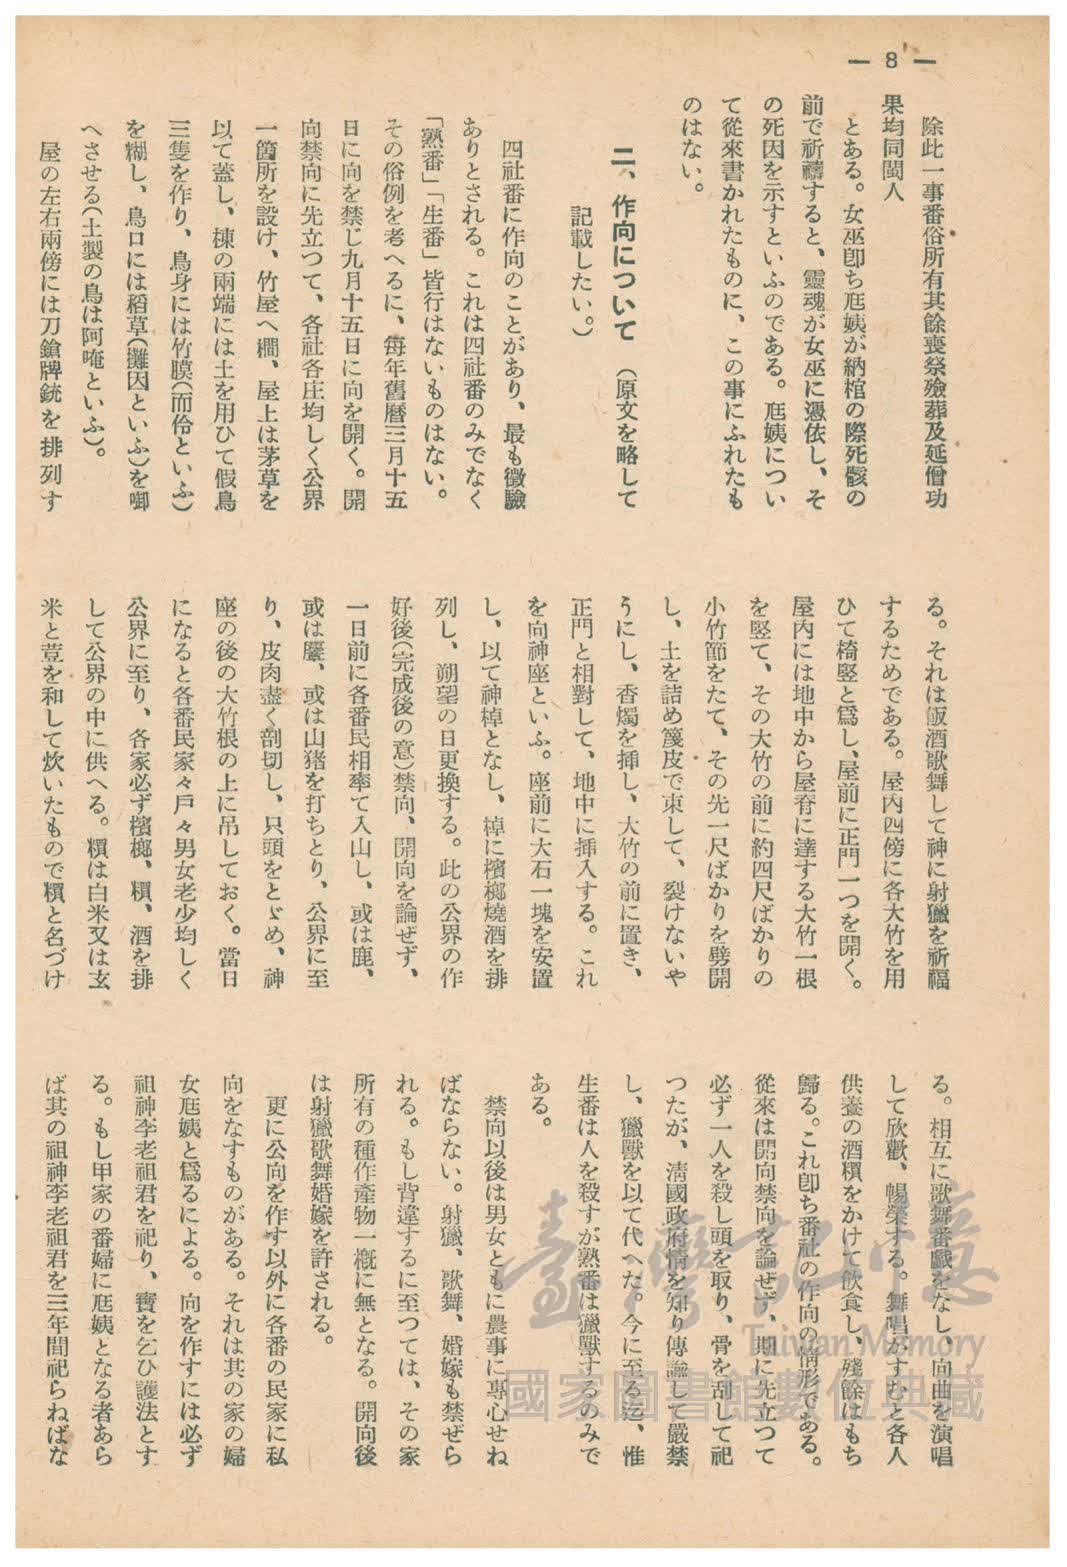 — 8 —
除此一事番俗所有其餘喪祭殮葬及延僧功
果均同閩人
とある。女巫卽ち尫姨が納棺の際死骸の
前で祈禱すると、靈魂が女巫に憑依し、そ
の死因を示すといふのである。尫姨につい
て從來書かれたものに、この事にふれたも
のはない。
二、作向について （原文を略して
記載したい。）
四社番に作向のことがあり、最も徵驗
ありとされる。これは四社番のみでなく
「熟番」「生番」皆行はないものはない。
その俗例を考へるに、每年舊曆三月十五
日に向を禁じ九月十五日に向を開く。開
向禁向に先立つて、各社各庄均しく公界
一箇所を設け、竹屋へ橺、屋上は茅草を
以て蓋し、棟の兩端には土を用ひて假鳥
三隻を作り、鳥身には竹膜（而伶といふ）
を糊し、鳥口には稻草（攤因といふ）を啣
へさせる（土製の鳥は阿唵といふ）。
屋の左右兩傍には刀鎗牌銃を排列す
る。それは飯酒歌舞して神に射獵を祈福
するためである。屋內四傍に各大竹を用
ひて椅竪と爲し、屋前に正門一つを開く。
屋內には地中から屋脊に達する大竹一根
を竪て、その大竹の前に約四尺ばかりの
小竹節をたて、その先一尺ばかりを劈開
し、土を詰め篾皮で束して、裂けないや
うにし、香燭を挿し、大竹の前に置き、
正門と相對して、地中に挿入する。これ
を向神座といふ。座前に大石一塊を安置
し、以て神棹となし、棹に檳榔燒酒を排
列し、朔望の日更換する。此の公界の作
好後（完成後の意）禁向、開向を論ぜず、
一日前に各番民相率て入山し、或は鹿、
或は麞、或は山猪を打ちとり、公界に至
り、皮肉盡く剖切し、只頭をとゞめ、神
座の後の大竹根の上に吊しておく。當日
になると各番民家々戶々男女老少均しく
公界に至り、各家必ず檳榔、粸、酒を排
して公界の中に供へる。粸は白米又は玄
米と荳を和して炊いたもので粸と名づけ
る。相互に歌舞番戲をなし、向曲を演唱
して欣歡、暢榮する。舞唱がすむと各人
供養の酒粸をかけて飮食し、殘餘はもち
歸る。これ卽ち番社の作向の情形である。
從來は開向禁向を論ぜず、期に先立つて
必ず一人を殺し頭を取り、骨を刮して祀
つたが、淸國政府情を知り傳諭して嚴禁
し、獵獸を以て代へた。今に至る迄、惟
生番は人を殺すが熟番は獵獸するのみで
ある。
禁向以後は男女ともに農事に專心せね
ばならない。射獵、歌舞、婚嫁も禁ぜら
れる。もし背違するに至つては、その家
所有の種作產物一槪に無となる。開向後
は射獵歌舞婚嫁を許される。
更に公向を作す以外に各番の民家に私
向をなすものがある。それは其の家の婦
女尫姨と爲るによる。向を作すには必ず
祖神李老祖君を祀り、寶を乞ひ護法とす
る。もし甲家の番婦に尫姨となる者あら
ば其の祖神李老祖君を三年間祀らねばな
臺灣記憶
Taiwan Memory
國家圖書館數位典藏